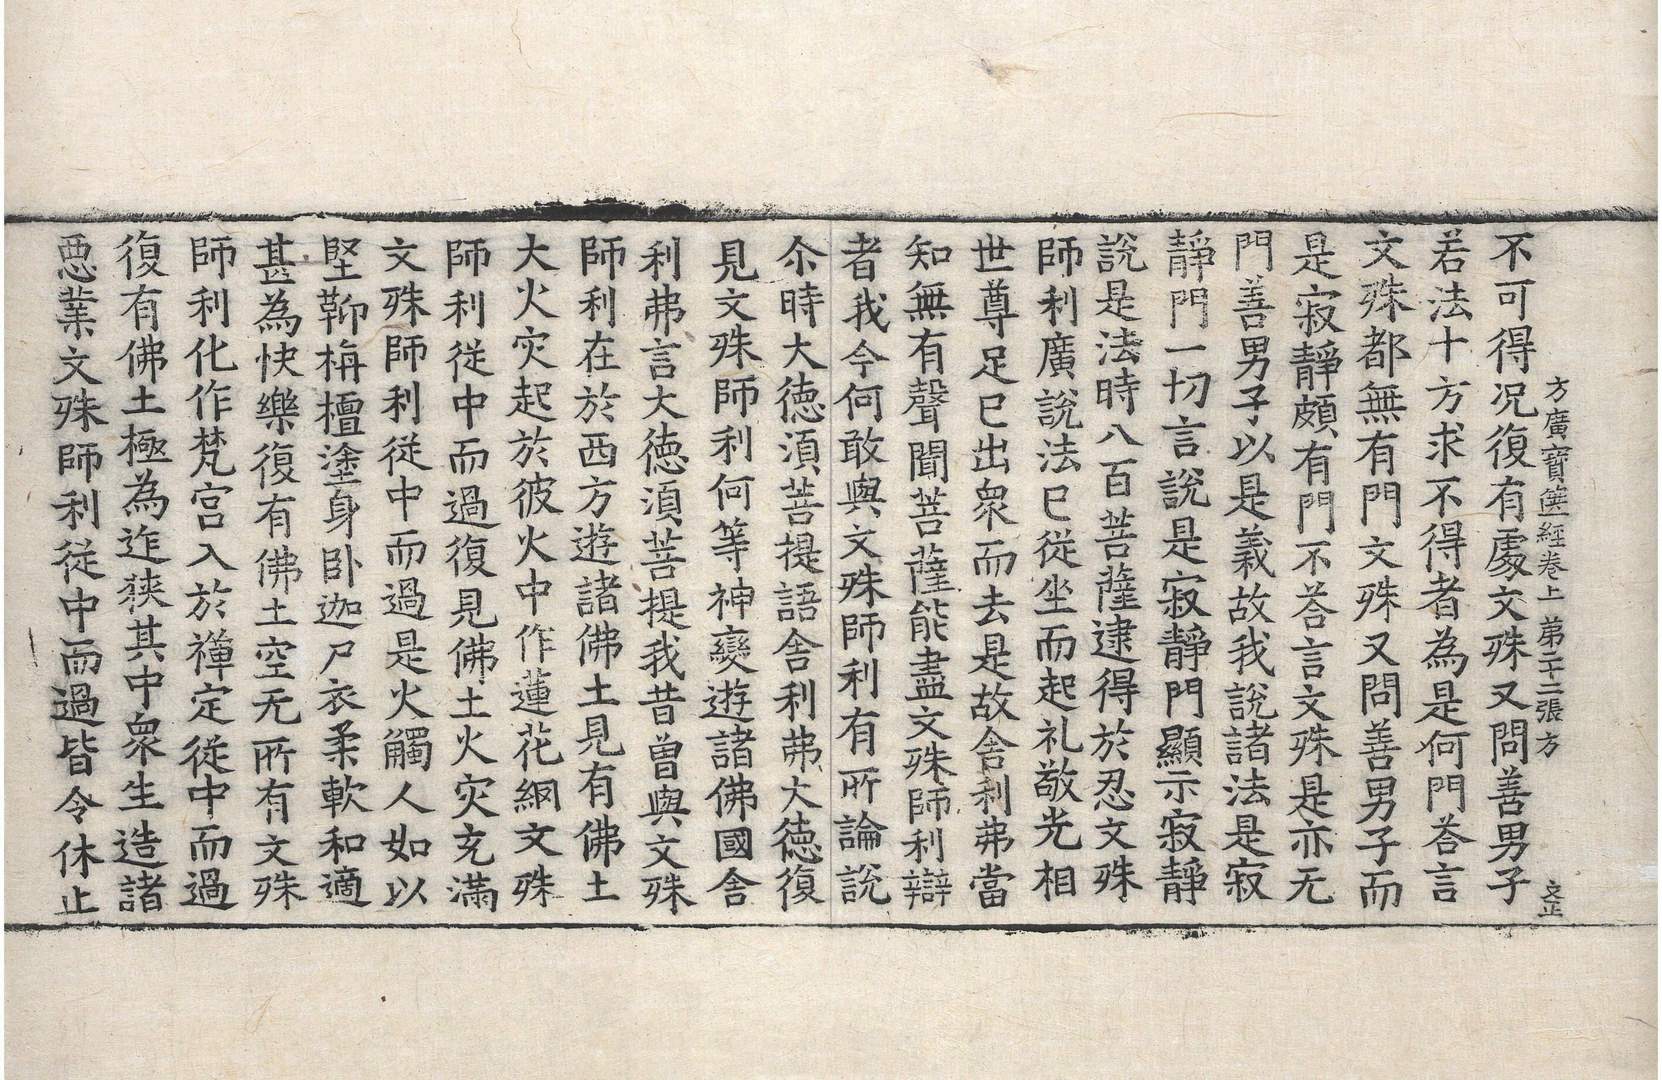 方廣寶篋經卷上 第二十二張 方 文正
不可得况復有處文殊又問善男子
若法十方求不得者為是何門荅言
文殊都無有門文殊又問善男子而
是寂靜頗有門不荅言文殊是亦无
門善男子以是義故我說諸法是寂
靜門一切言說是寂靜門顯示寂靜
說是法時八百菩薩逮得於忍文殊
師利廣說法已從坐而起礼敬光相
世尊足已出衆而去是故舍利弗當
知無有聲聞菩薩能盡文殊師利辯
者我今何敢與文殊師利有所論說
尒時大德須菩提語舍利弗大德復
見文殊師利何等神變遊諸佛國舍
利弗言大德須菩提我昔曾與文殊
師利在於西方遊諸佛土見有佛土
大火灾起於彼火中作蓮花網文殊
師利從中而過復見佛土火灾充滿
文殊師利從中而過是火觸人如以
堅鞕栴檀塗身卧迦尸衣柔軟和適
甚為快樂復有佛土空无所有文殊
師利化作梵宮入於禪定從中而過
復有佛土極為迮狹其中衆生造諸
惡業文殊師利從中而過皆令休止